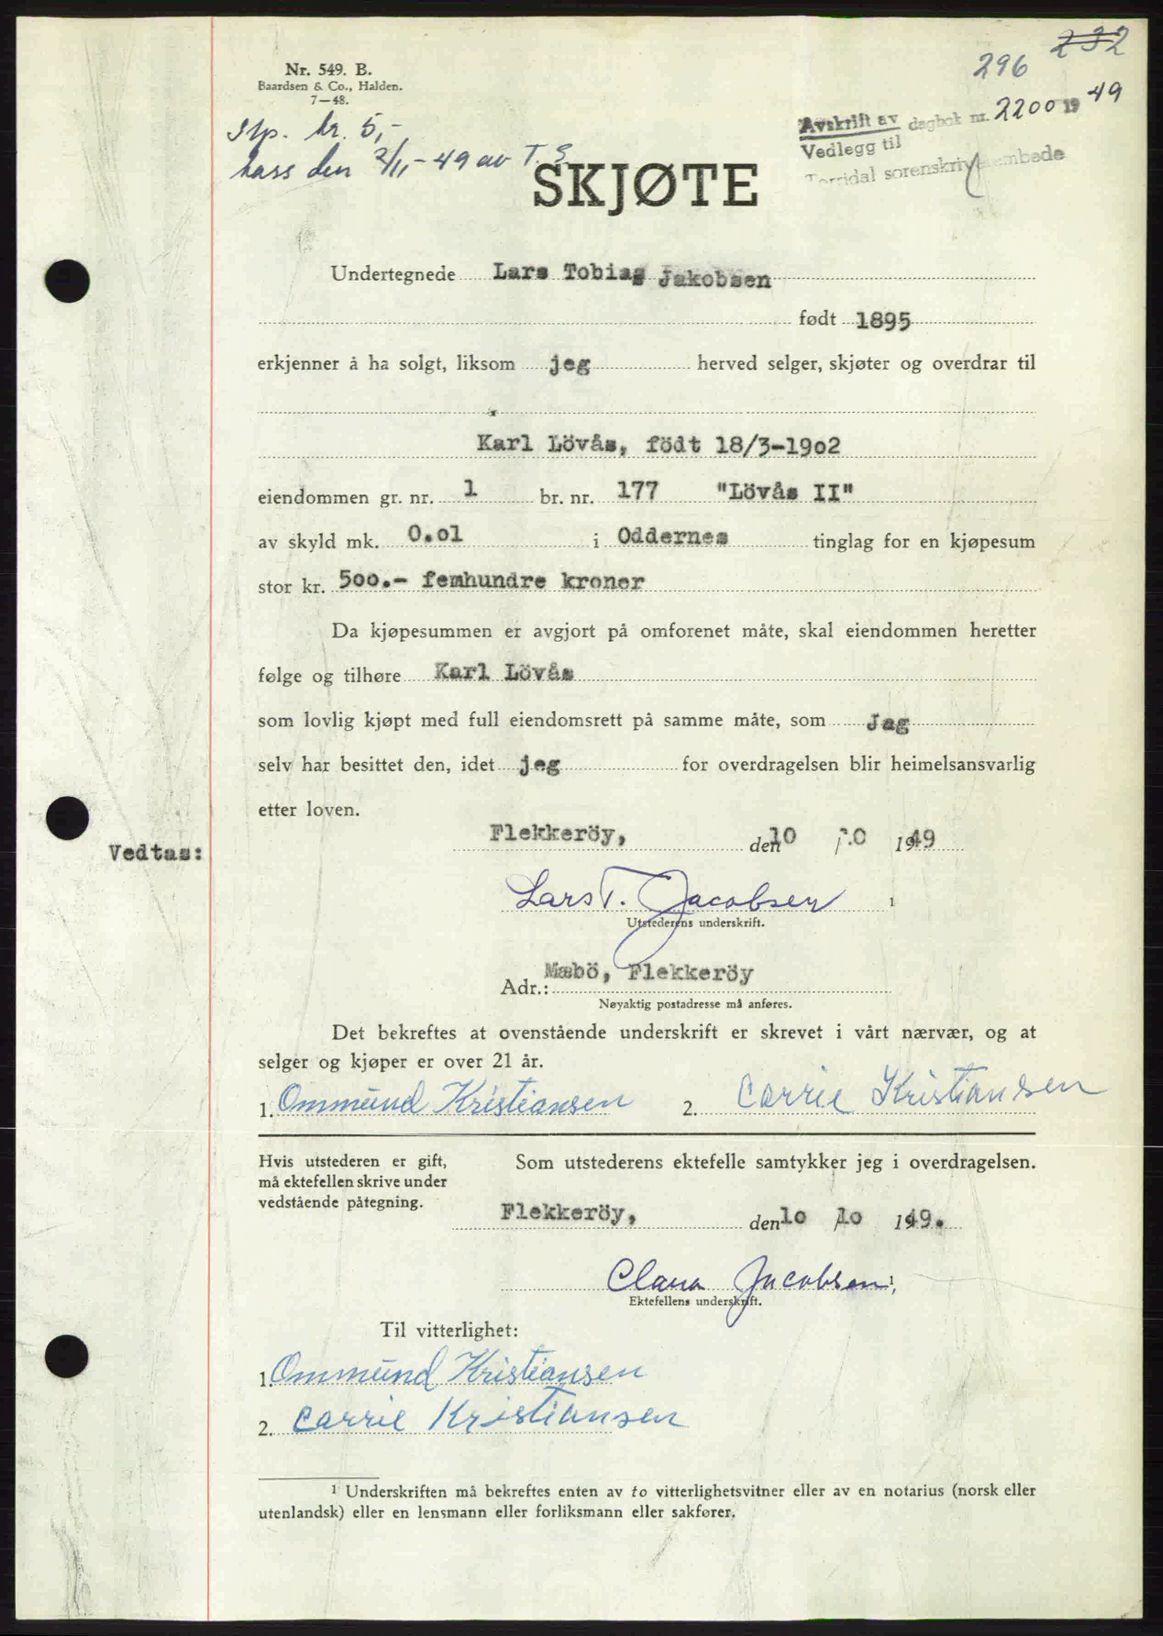 232
296
Nr. 549. B.
Baardsen & Co., Halden.
7—48.
Stp. kr. 5,-
kass den 2/11-49 av T. S.
Avskrift av dagbok nr. 2200 19 49
Vedlegg til
Torridal sorenskriverembede
SKJØTE
Undertegnede Lars Tobias Jakobsen
født 1895
erkjenner å ha solgt, liksom jeg herved selger, skjøter og overdrar til
Karl Lövås, födt 18/3-1902
eiendommen gr. nr. 1 br. nr. 177 "Lövås II"
av skyld mk. 0.01 i Oddernes tinglag for en kjøpesum
stor kr. 500.- femhundre kroner
Da kjøpesummen er avgjort på omforenet måte, skal eiendommen heretter
følge og tilhøre Karl Lövås
som lovlig kjøpt med full eiendomsrett på samme måte, som Jag
selv har besittet den, idet jeg for overdragelsen blir heimelsansvarlig
etter loven.
Flekkeröy, den 10 / 10 1949
Vedtas:
Lars T. Jacobsen 1
Utstederens underskrift.
Adr.: Mæbö, Flekkeröy
Nøyaktig postadresse må anføres.
Det bekreftes at ovenstående underskrift er skrevet i vårt nærvær, og at
selger og kjøper er over 21 år.
1. Ommund Kristiansen 2. Carrie Kristiansen
Hvis utstederen er gift,
må ektefellen skrive under
vedstående påtegning.
Som utstederens ektefelle samtykker jeg i overdragelsen.
Flekkeröy, den 10 / 10 1949.
Clara Jacobsen 1
Ektefellens underskrift.
Til vitterlighet:
1. Ommund Kristiansen
2. Carrie Kristiansen
1 Underskriften må bekreftes enten av to vitterlighetsvitner eller av en notarius (norsk eller
utenlandsk) eller en lensmann eller forliksmann eller sakfører.